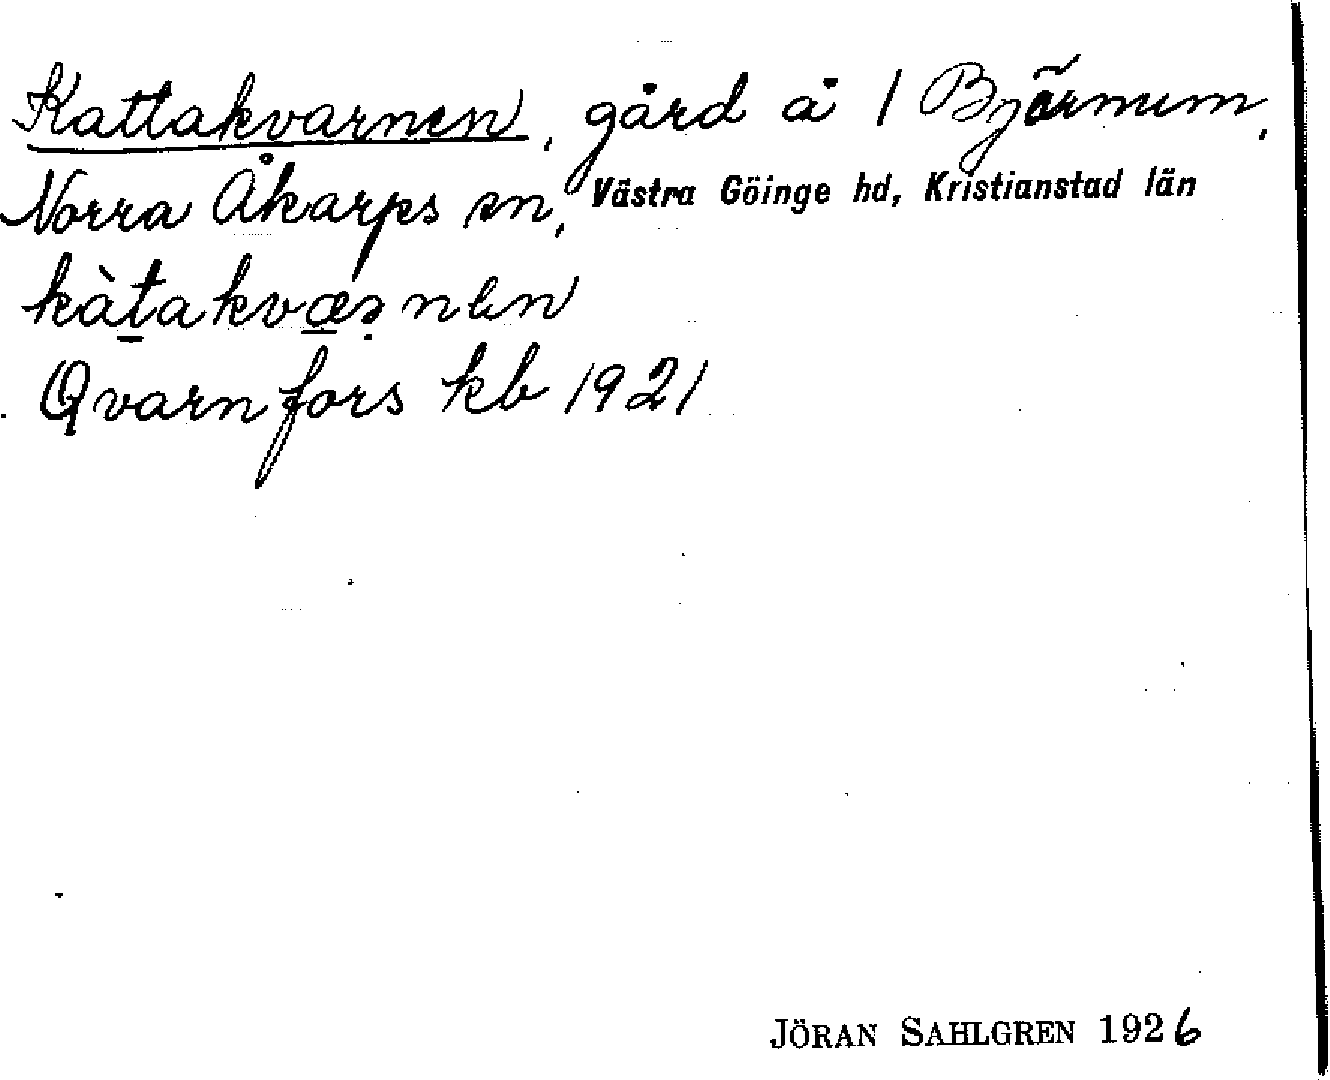 Kattakvarnen, gård å 1 Bjärnum,
Norra Åkarps sn, Västra Göinge hd, Kristianstad län
Qvarnfors kb 1921
JÖRAN SAHLGREN 1926